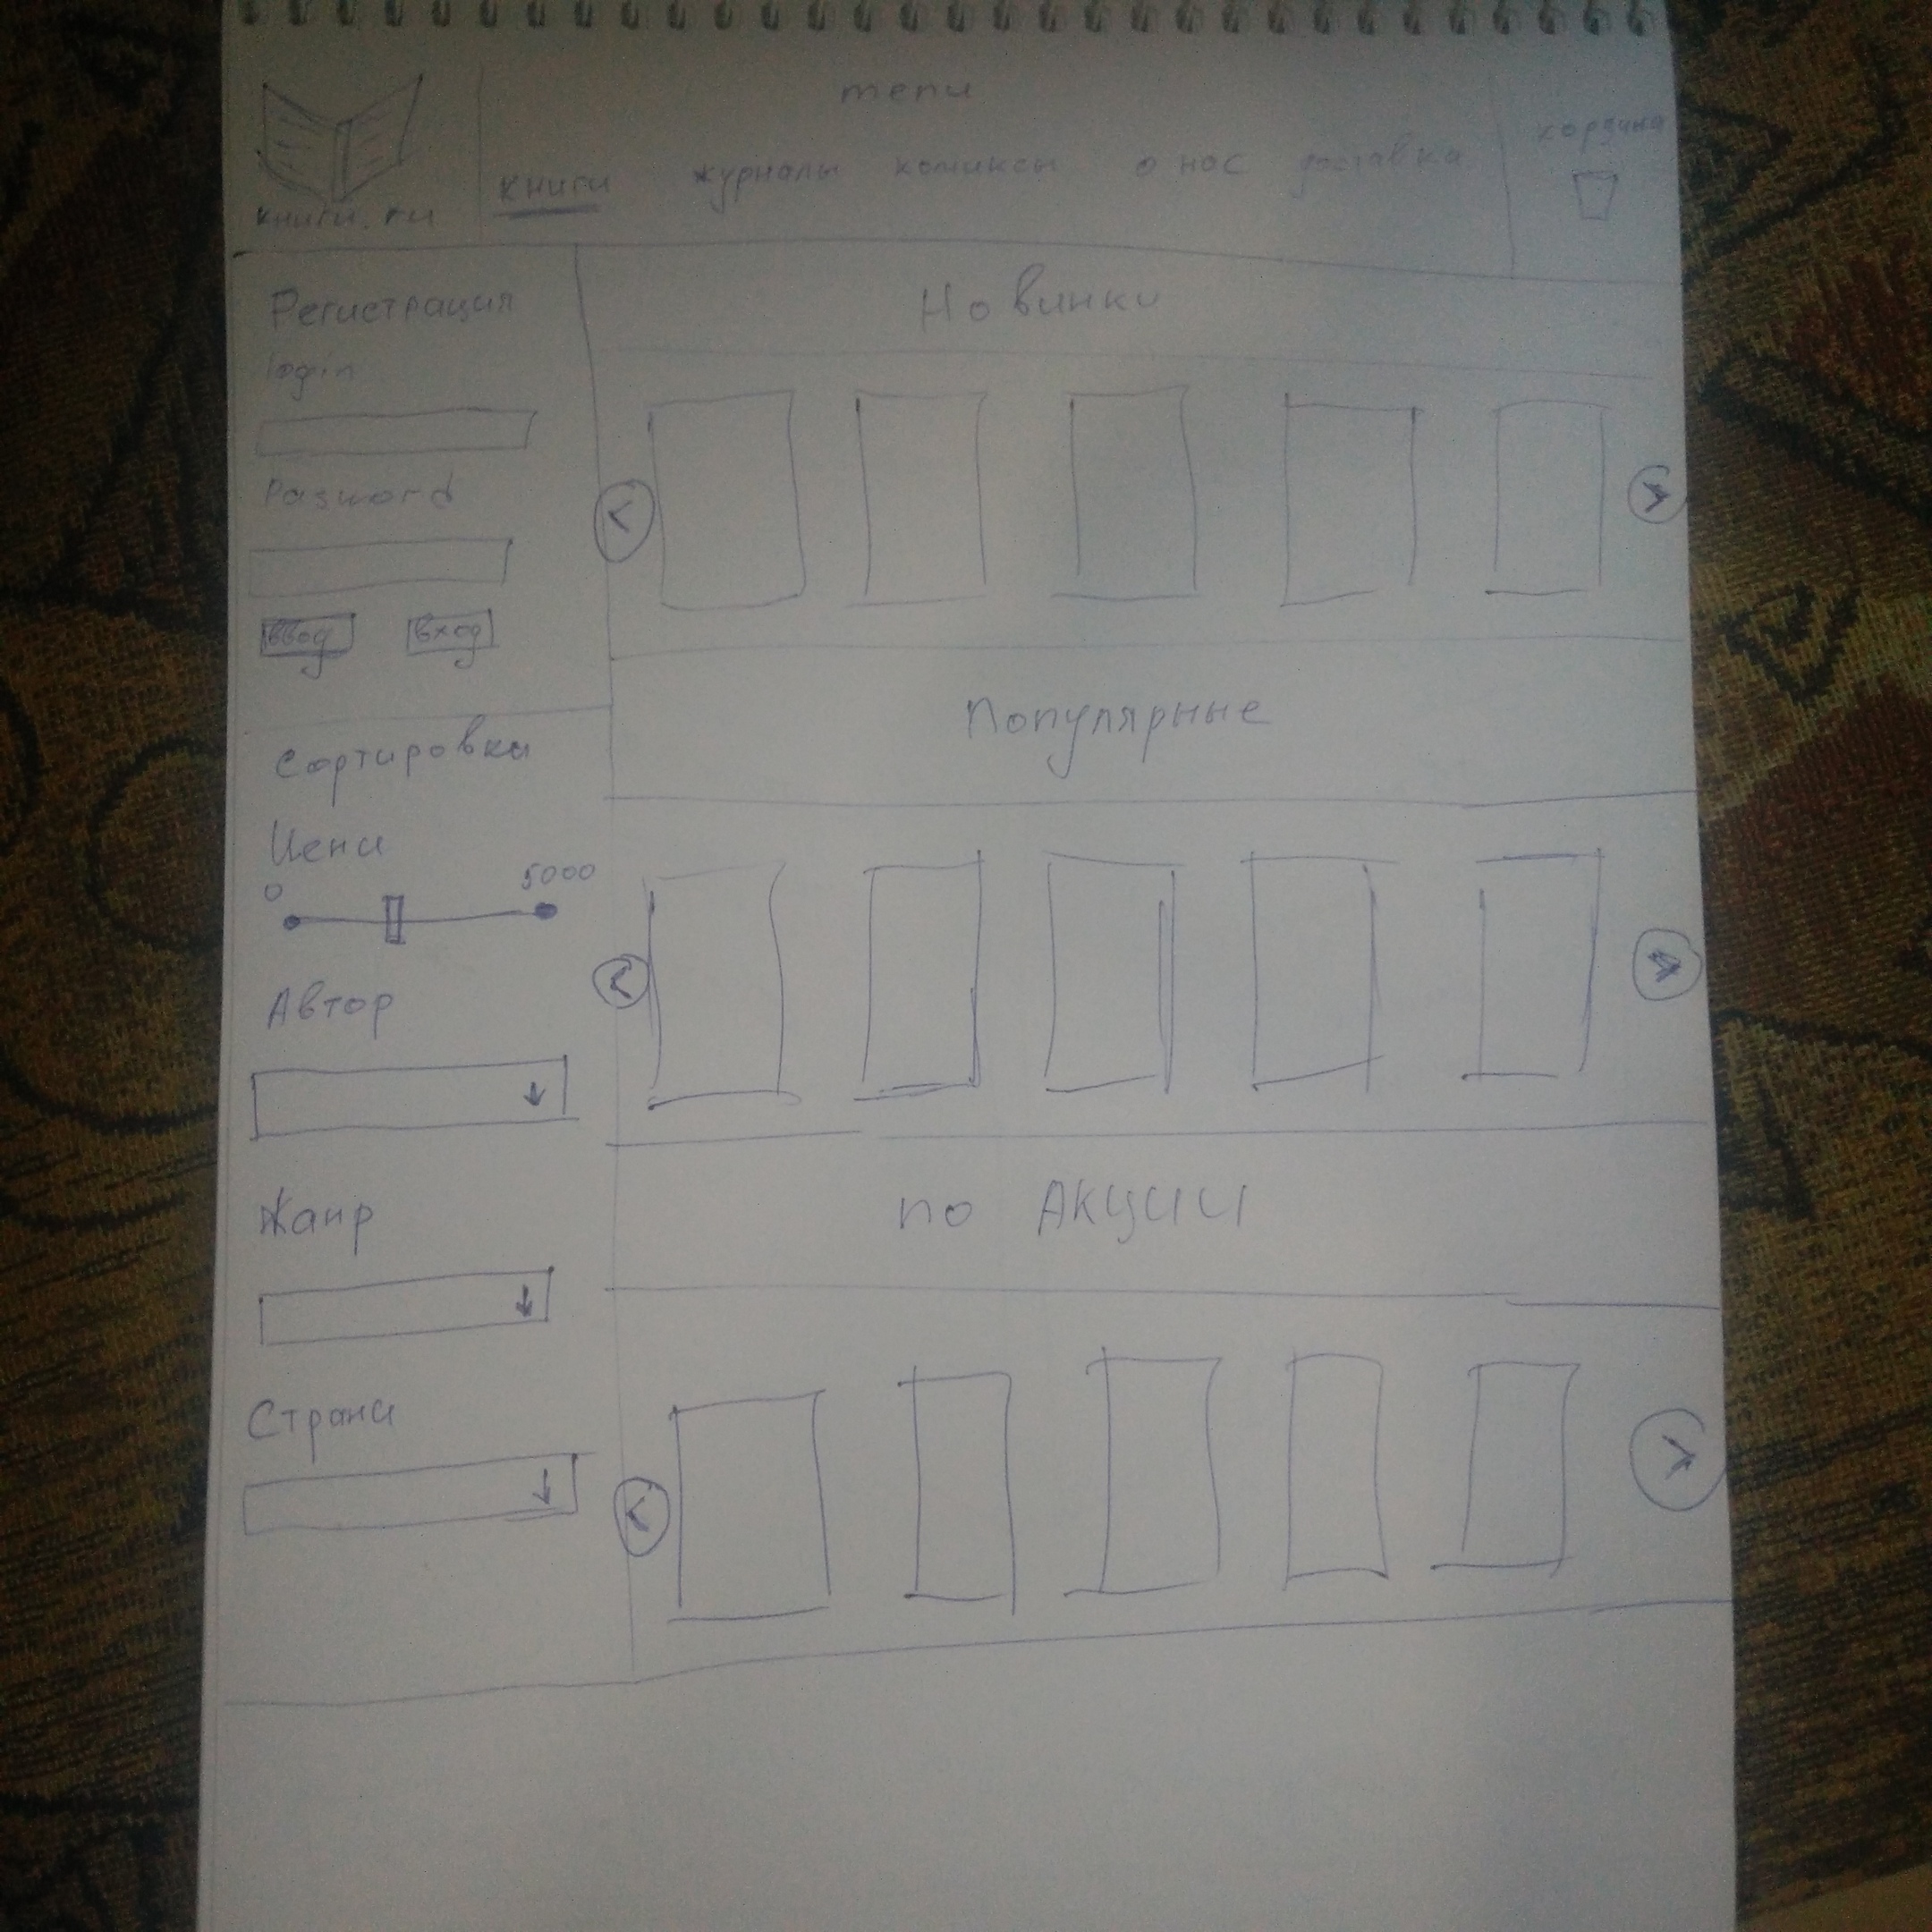 menu
корзина
книги журналы комиксы о нас доставка
книги.ru
Регистрация
login
Pasword
ввод вход
Сортировка
Цена
0 5000
Автор
Жанр
Страна
Новинки
<
>
Популярные
<
>
по Акции
<
>